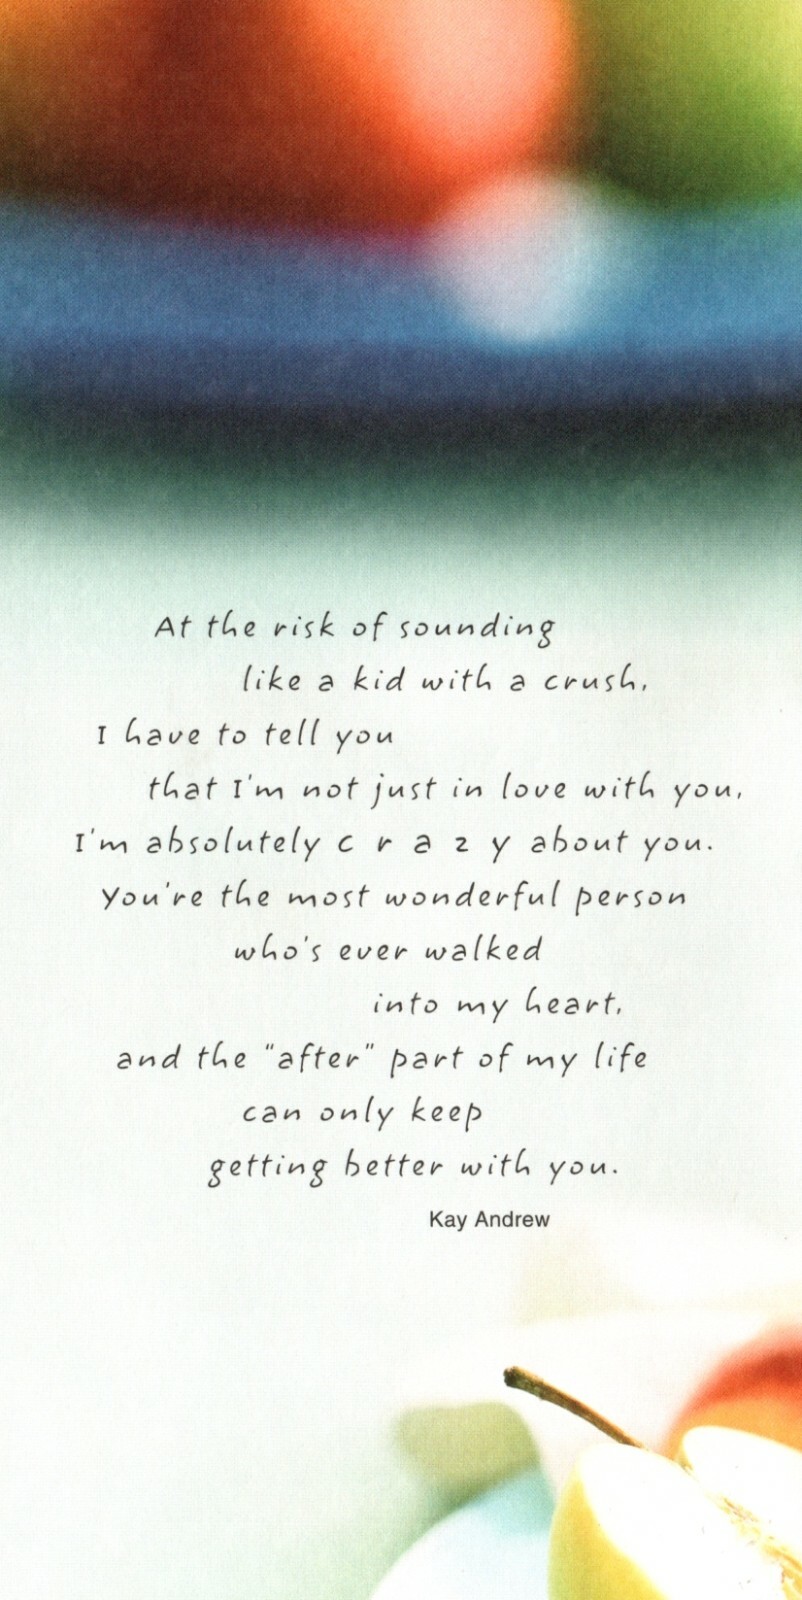 At the risk of sounding
like a kid with a crush,
I have to tell you
that I'm not just in love with you,
I'm absolutely c r a z y about you.
You're the most wonderful person
who's ever walked
into my heart,
and the "after" part of my life
can only keep
getting better with you.
Kay Andrew